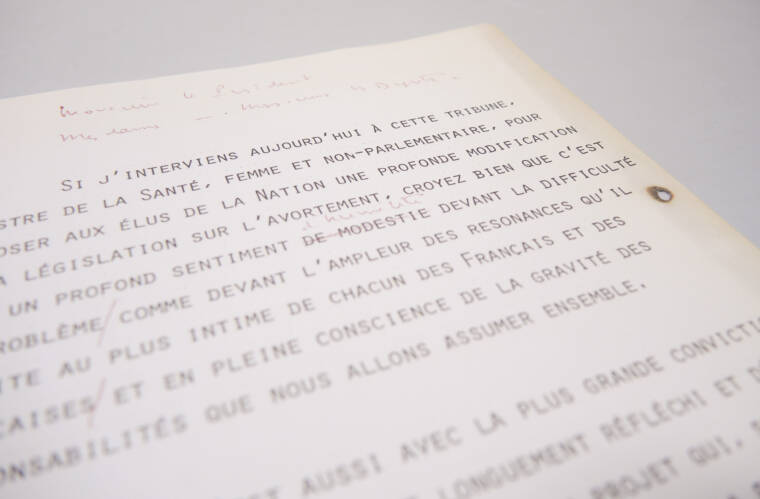 Monsieur le Président
Mesdames — Messieurs les Députés
SI J'INTERVIENS AUJOURD'HUI À CETTE TRIBUNE,
STRE DE LA SANTÉ, FEMME ET NON-PARLEMENTAIRE, POUR
OSER AUX ÉLUS DE LA NATION UNE PROFONDE MODIFICATION
A LÉGISLATION SUR L'AVORTEMENT, CROYEZ BIEN QUE C'EST
d'humilité
UN PROFOND SENTIMENT DE MODESTIE DEVANT LA DIFFICULTÉ
ROBLÈME/COMME DEVANT L'AMPLEUR DES RESONANCES QU'IL
ITE AU PLUS INTIME DE CHACUN DES FRANÇAIS ET DES
ÇAISES/ ET EN PLEINE CONSCIENCE DE LA GRAVITÉ DES
ONSABILITÉS QUE NOUS ALLONS ASSUMER ENSEMBLE.
ST AUSSI AVEC LA PLUS GRANDE CONVICTIO
LONGUEMENT RÉFLÉCHI ET D
PROJET QUI,